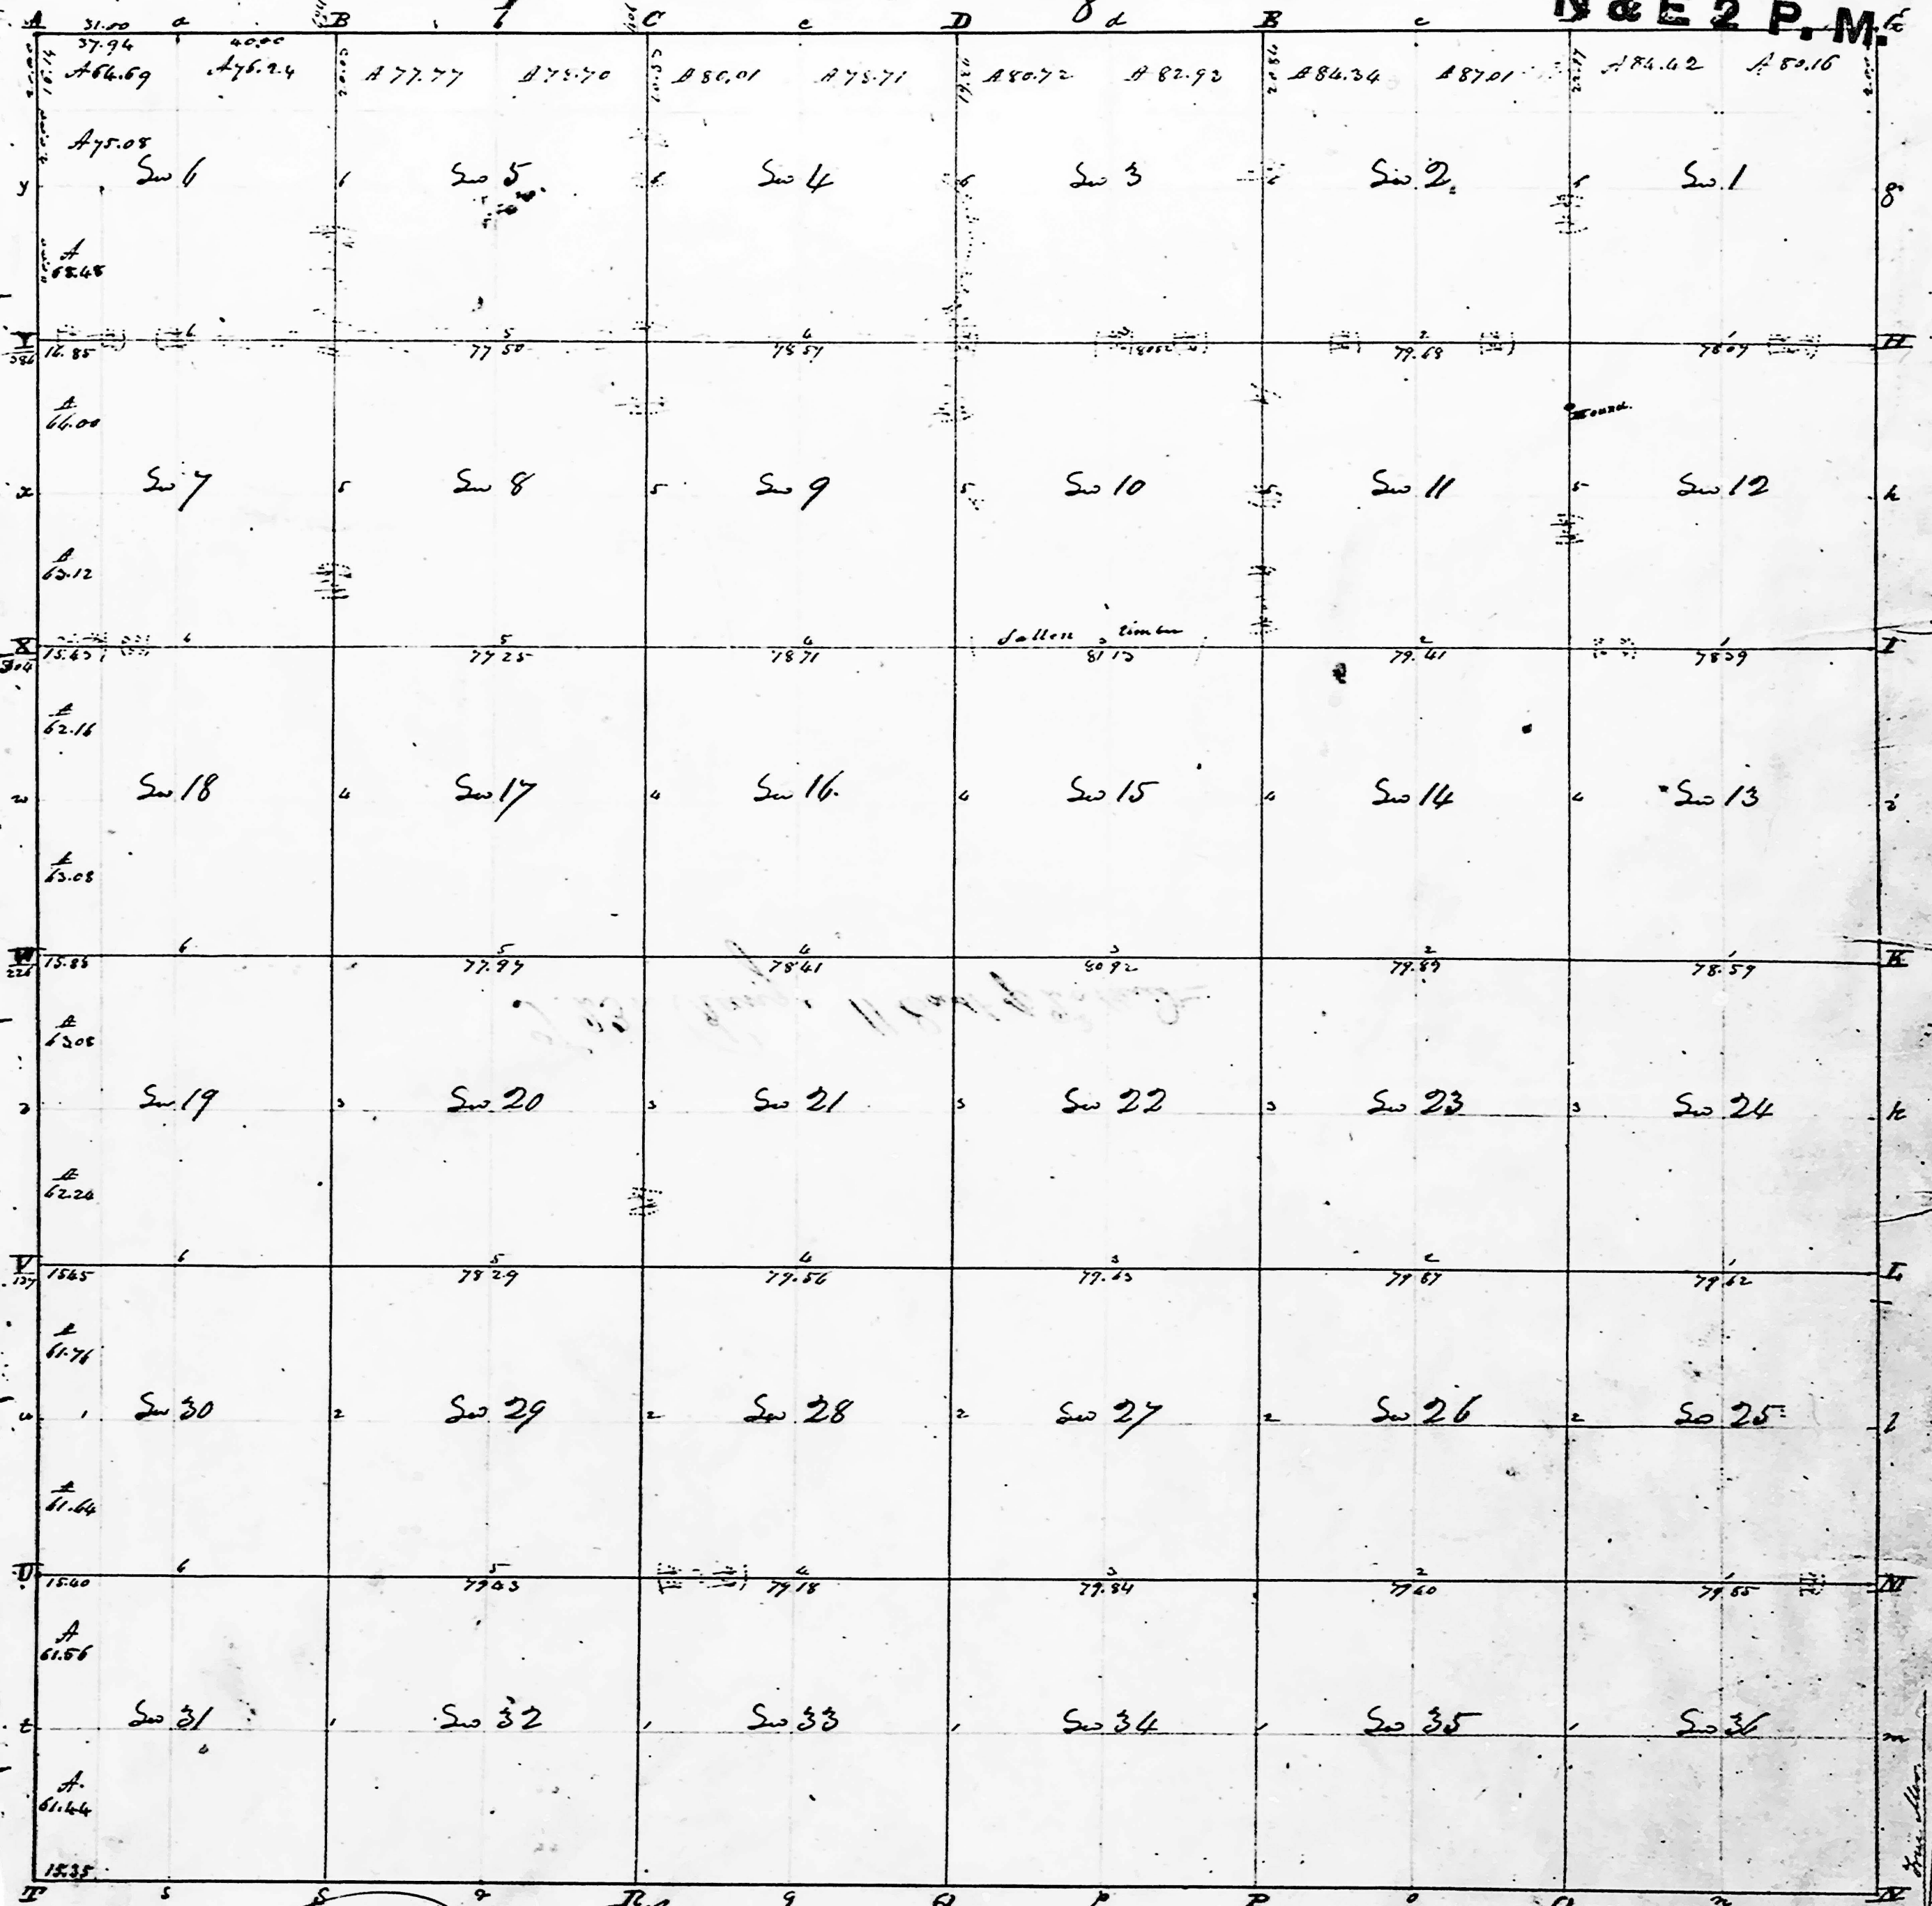 N & E 2 P. M.
A a B b C c D d E e
31.50
37.94 40.00
A 64.69 A 76.24 A 77.77 A 78.70 A 80.01 A 78.71 A 80.72 A 82.92 A 84.34 A 87.01 A 84.42 A 80.16
A 75.08
y Sec 6 6 Sec 5 6 Sec 4 6 Sec 3 6 Sec 2 6 Sec 1 g
A
68.48
Y 6 5 4 3 2 1 H
16.85 77.50 78.57 80.52 79.68 78.07
A
66.00
Mound
x Sec 7 5 Sec 8 5 Sec 9 5 Sec 10 5 Sec 11 5 Sec 12 h
A
63.12
fallen timber
X 6 5 4 3 2 1 I
15.43 77.25 78.71 81.13 79.41 78.39
A
62.16
w Sec 18 4 Sec 17 4 Sec 16 4 Sec 15 4 Sec 14 4 Sec 13 i
A
63.08
W 6 5 4 3 2 1 K
15.85 77.97 78.41 80.92 79.89 78.59
A
63.08
Sec 19 3 Sec 20 3 Sec 21 3 Sec 22 3 Sec 23 3 Sec 24 k
A
62.24
V 6 5 4 3 2 1 L
137 15.45 78.29 79.56 79.63 79.87 79.62
A
61.76
u Sec 30 2 Sec 29 2 Sec 28 2 Sec 27 2 Sec 26 2 Sec 25 l
A
61.64
U 6 5 4 3 2 1 M
15.40 79.43 79.18 79.84 79.60 79.55
A
61.56
t Sec 31 1 Sec 32 1 Sec 33 1 Sec 34 1 Sec 35 1 Sec 36 m
A
61.44
15.35
T s S R q Q p P o O n N